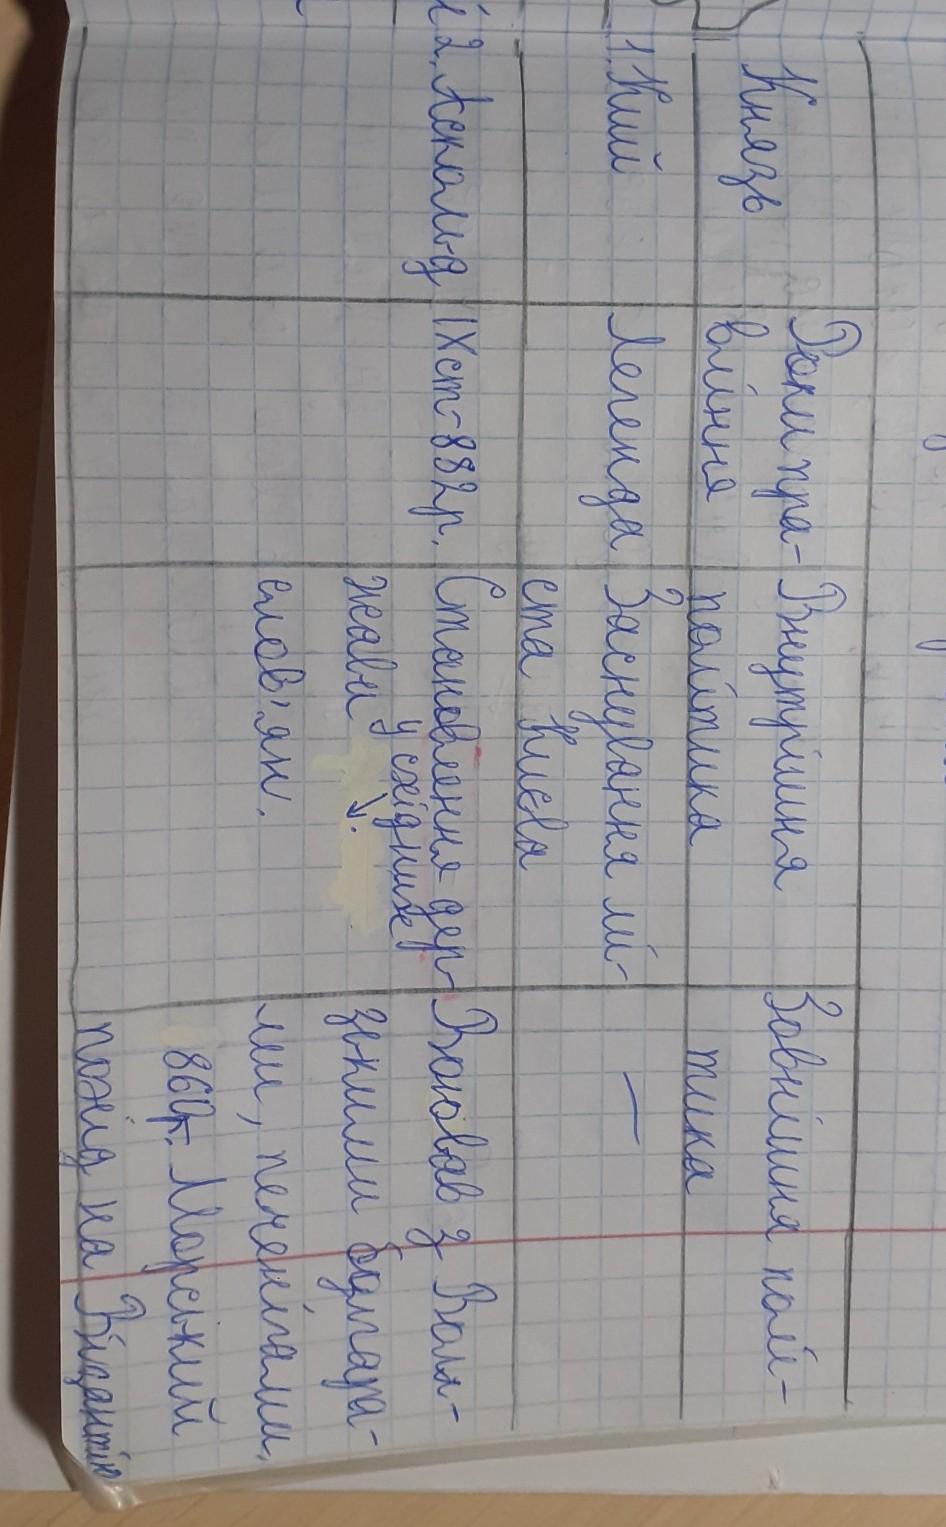 Князь
Роки пра-
вління
Внутрішня
політика
Зовнішня полі-
тика
1. Кий
Легенда
Заснування мі-
ста Києва
—
2. Аскольд
ІХст-882р.
Становлення дер-
жави у східних
слов'ян.
Воював з Воль-
зькими болгара-
ми, печенігами,
860р. Морський
похід на Візантію